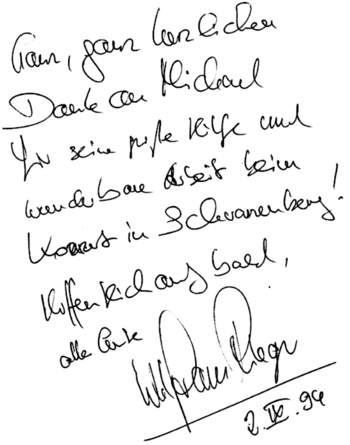 Ganz, ganz herzlichen
Dank an Michael
für seine große Hilfe und
wunderbare Arbeit beim
Konzert in Schwanenberg!
Hoffentlich auf bald,
alles Gute
2. IX. 94